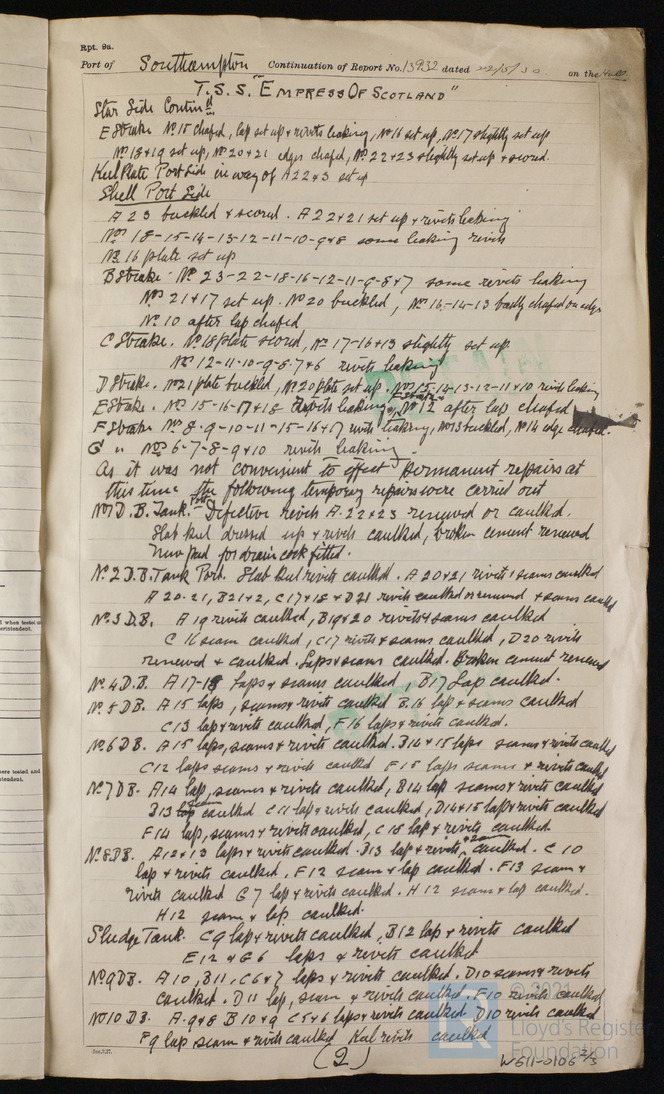 Rpt. 9a.
Port of Southampton Continuation of Report No. 13932 dated 22/5/30 on the Hull
T.S.S. "EMPRESS OF SCOTLAND"
Star Side Contind
E Strake No 15 chafed, lap set up & rivets leaking, No 16 set up, No 17 slightly set up
No 18 & 19 set up, No 20 & 21 edges chafed, No 22 & 23 slightly set up & scored.
Keel Plate Port Side in way of A 22 & 3 set up
Shell Port Side
A 23 buckled & scored. A 22 & 21 set up & rivets leaking
Nos 18-15-14-13-12-11-10-9 & 8 some leaking rivets
No 16 plate set up
B Strake. No 23-22-18-16-12-11-9-8 & 7 some rivets leaking
Nos 21 & 17 set up. No 20 buckled, No 16-14-13 badly chafed on edge
No 10 after lap chafed
C Strake. No 18 plate scored, No 17-16 & 13 slightly set up
Nos 12-11-10-9-8-7 & 6 rivets leaking
D Strake. No 21 plate buckled, No 20 plate set up. Nos 15-14-13-12-11 & 10 rivets leaking
E Strake. Nos 15-16-17 & 18 rivets leaking, No 12 after lap chafed
F Strake Nos 8-9-10-11-15-16 & 17 rivets leaking, No 13 buckled, No 14 edge chafed.
G " Nos 6-7-8-9 & 10 rivets leaking.
As it was not convenient to effect permanent repairs at
this time the following temporary repairs were carried out
No 1 D.B. Tank. Port Defective rivets A. 22 & 23 renewed or caulked.
Slab keel dressed up & rivets caulked, broken cement renewed
new pad for drain cock fitted.
No 2 D.B. Tank Port. Slab keel rivets caulked. A 20 & 21 rivets & seams caulked
A 20-21, B 21 & 2, C 17 & 18 & D 21 rivets caulked or renewed & seams caulked
No 3 D.B. A 19 rivets caulked, B 19 & 20 rivets & seams caulked
C 16 seam caulked, C 17 rivets & seams caulked, D 20 rivets
renewed & caulked. Laps & seams caulked. Broken cement renewed
No 4 D.B. A 17-18 Laps & seams caulked, B 17 Lap caulked.
No 5 D.B. A 15 laps, seams & rivets caulked B. 16 lap & seams caulked
C 13 lap & rivets caulked, F 16 laps & rivets caulked.
No 6 D.B. A 15 laps, seams & rivets caulked. B 14 & 15 laps seams & rivets caulked
C 12 laps seams & rivets caulked F 15 laps seams & rivets caulked
No 7 D.B. A 14 lap, seams & rivets caulked, B 14 lap seams & rivets caulked
B 13 seam caulked C 11 lap & rivets caulked, D 14 & 15 lap & rivets caulked
F 14 lap, seams & rivets caulked, C 18 lap & rivets caulked.
No 8 D.B. A 12 & 13 laps & rivets caulked. B 13 lap & rivets & seam caulked. C 10
lap & rivets caulked, F 12 seam & lap caulked. F 13 seam &
rivets caulked G 7 lap & rivets caulked. H 12 seam & lap caulked.
H 12 seam & lap caulked.
Sludge Tank. C 9 lap & rivets caulked, B 12 lap & rivets caulked
E 12 & G 6 laps & rivets caulked
No 9 D.B. A 10, B 11, C 6 & 7 laps & rivets caulked. D 10 seams & rivets
caulked. D 11 lap, seam & rivets caulked. F 10 rivets caulked
No 10 D.B. A. 9 & 8 B 10 & 9 C 5 & 6 laps & rivets caulked D 10 rivets caulked
F 9 lap seam & rivets caulked Keel rivets caulked
(2)
W611-0106 2/3
© 2021
Lloyd's Register
Foundation